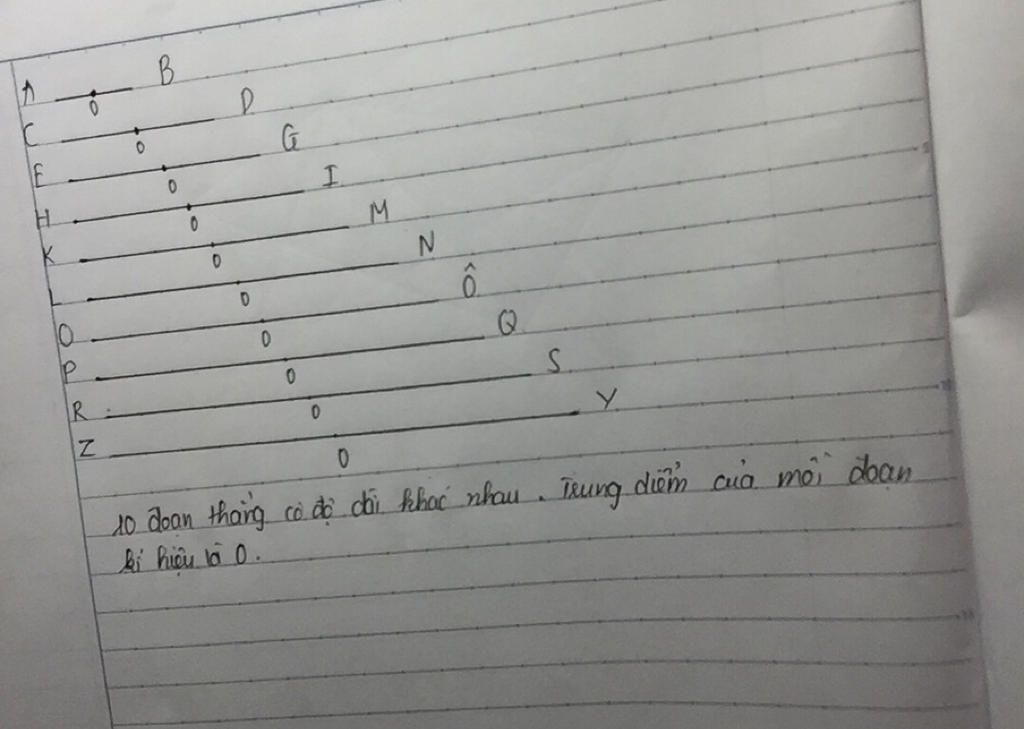 A B
O
C D
O
E G
O
H I
O
K M
O
L N
O
O Ô
O
P Q
O
R S
O
Z Y
O
10 đoạn thẳng có độ dài khác nhau. Trung điểm của mỗi đoạn
kí hiệu là O.